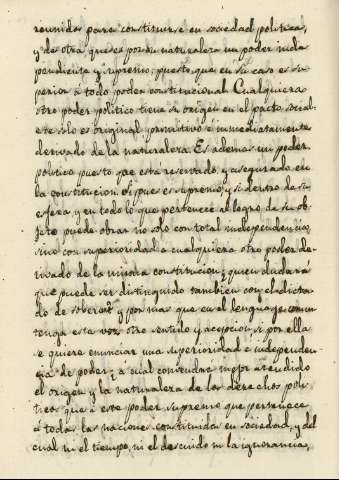 reunidos para constituirse en sociedad politica,
y de otra que es por su naturaleza un poder inde
pendiente y supremo, puesto que en su caso es su
perior á todo poder constitucional. Cualquiera
otro poder politico tiene su origen en el pacto social:
este solo es original, primitivo é inmediatamente
derivado de la naturaleza. Es ademas un poder
politico puesto que está reservado y asegurado en
la constitucion. Si pues es supremo, y si dentro de su
esfera y en todo lo que pertenece al logro de su ob-
jeto puede obrar no solo con total independencia,
sino con superioridad á cualquiera otro poder de-
rivado de la misma constitucion; quien dudará
que puede ser distinguido tambien con el dicta
do de soberano? y por mas que en el lenguage comun
tenga esta voz otro sentido y acepcion, si por ella
se quiere enunciar una superioridad é independen
cia de poder, ¿a cual convendra mejor atendido
el origen y la naturaleza de los derechos poli
ticos que á este poder supremo que pertenece
á todas las naciones constituidas en sociedad, y del
cual ni el tiempo, ni el descuido ni la ignorancia,